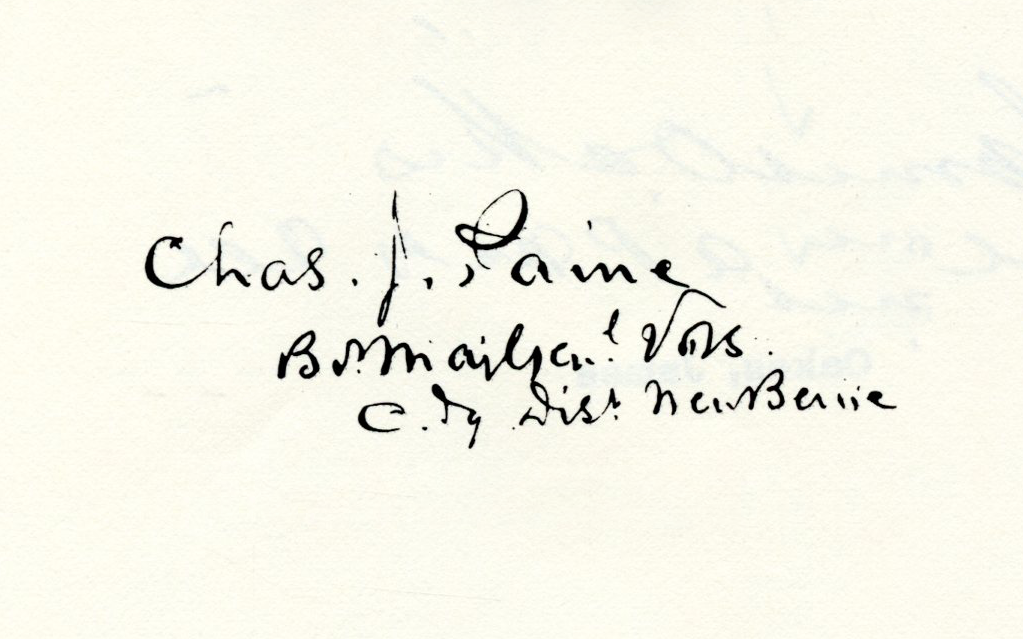 Chas. J. Paine
Bt. Maj Genl Vols.
C. dg Dist. NewBerne